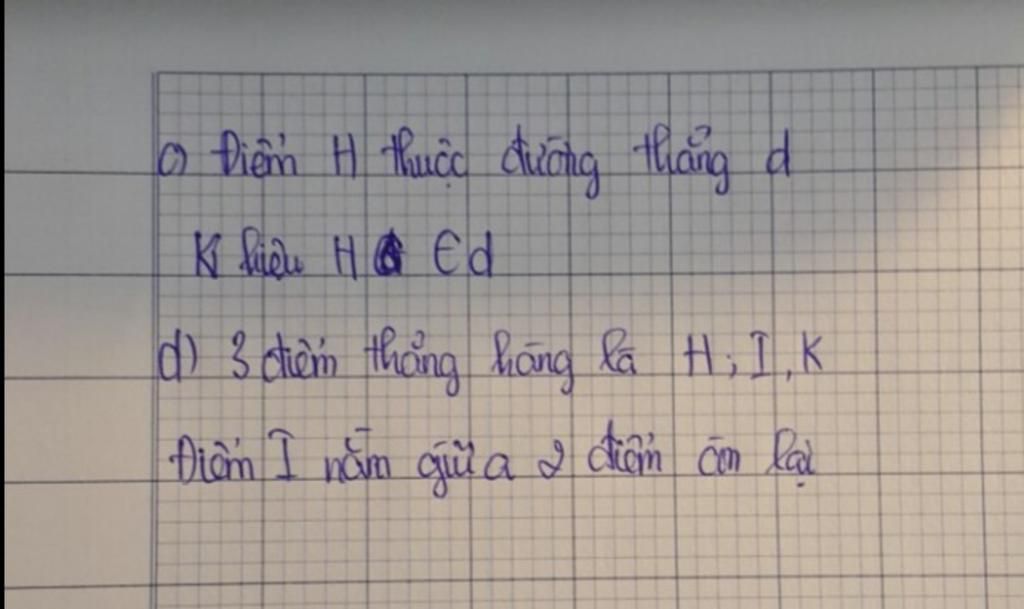 c) Điểm H thuộc đường thẳng d
Kí hiệu H ∈ d
d) 3 điểm thẳng hàng là H; I, K
Điểm I nằm giữa 2 điểm còn lại